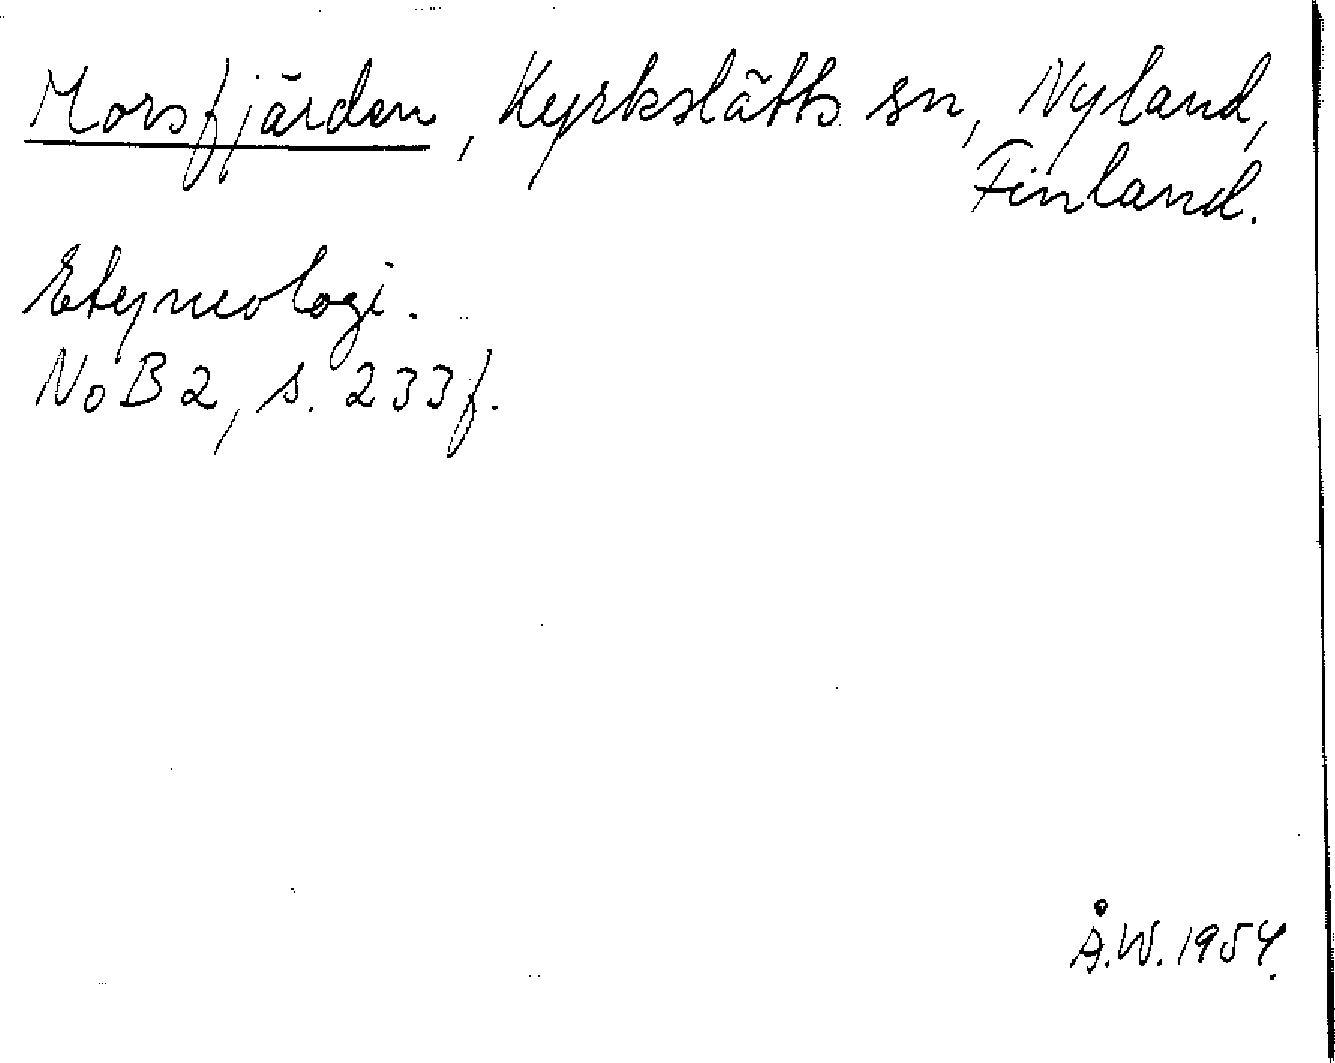 Morsfjärden, Kyrkslätts sn, Nyland,
Finland.
Etymologi.
NoB 2, s. 233 f.
Å.W. 1954.